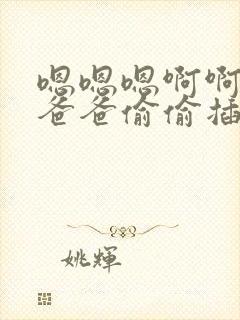 嗯嗯嗯啊啊
爸爸偷偷插
姚輝